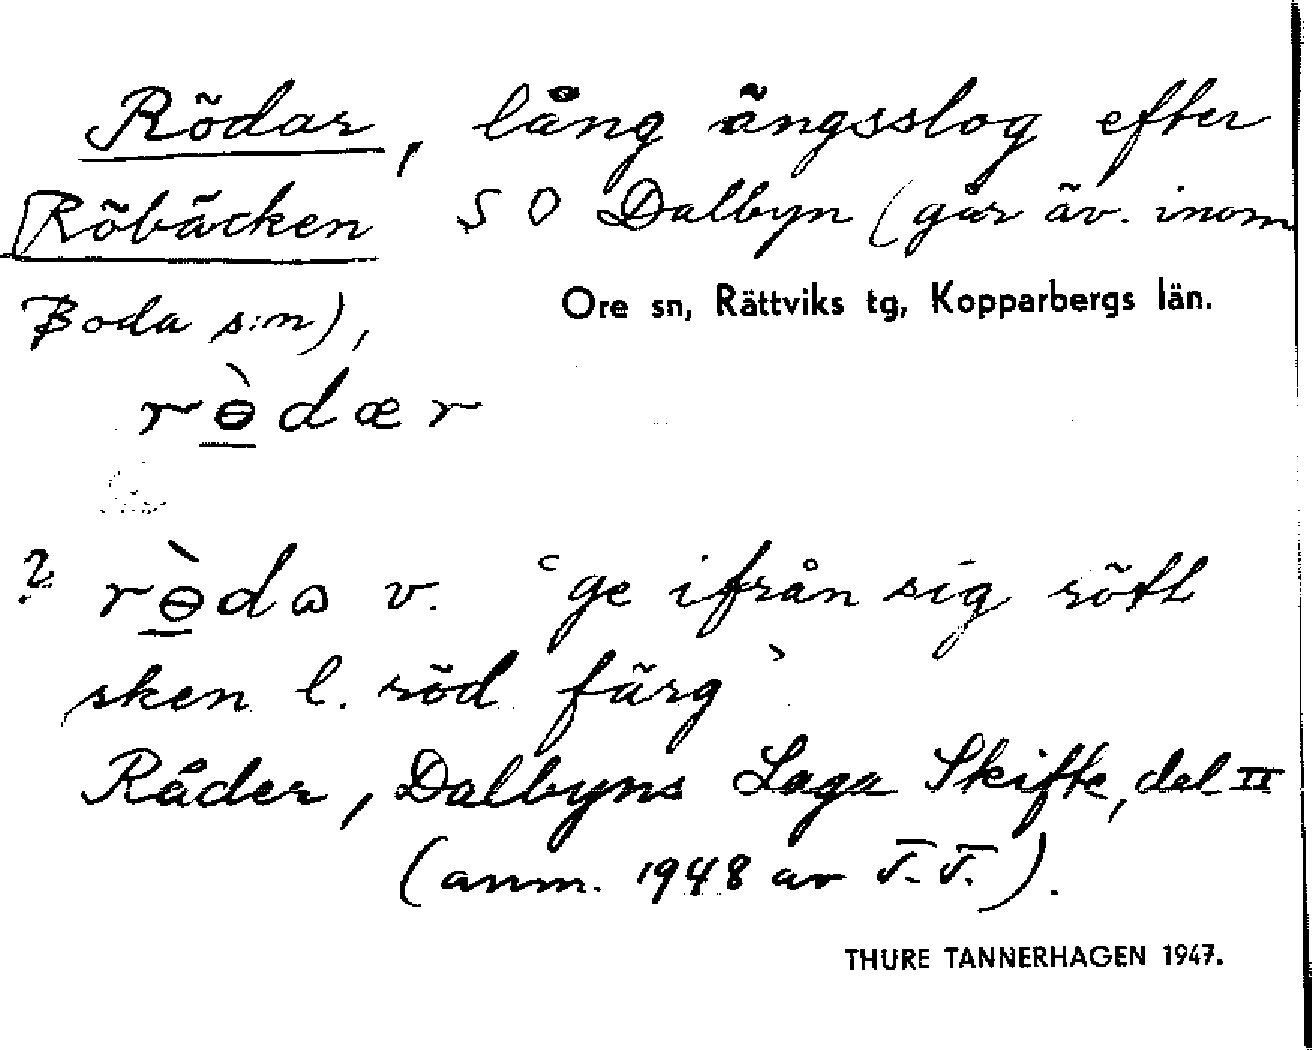 Rödar, lång ängsslog efter
Röbäcken S O Dalbyn (går äv. inom
Boda s:n),
Ore sn, Rättviks tg, Kopparbergs län.
rɵ̲̀dær
? rɵ̲̀dɷ v. ʿge ifrån sig rött
sken l. röd färgʾ
Råder, Dalbyns Laga Skifte, del II
(anm. 1948 av T.T.).
THURE TANNERHAGEN 1947.